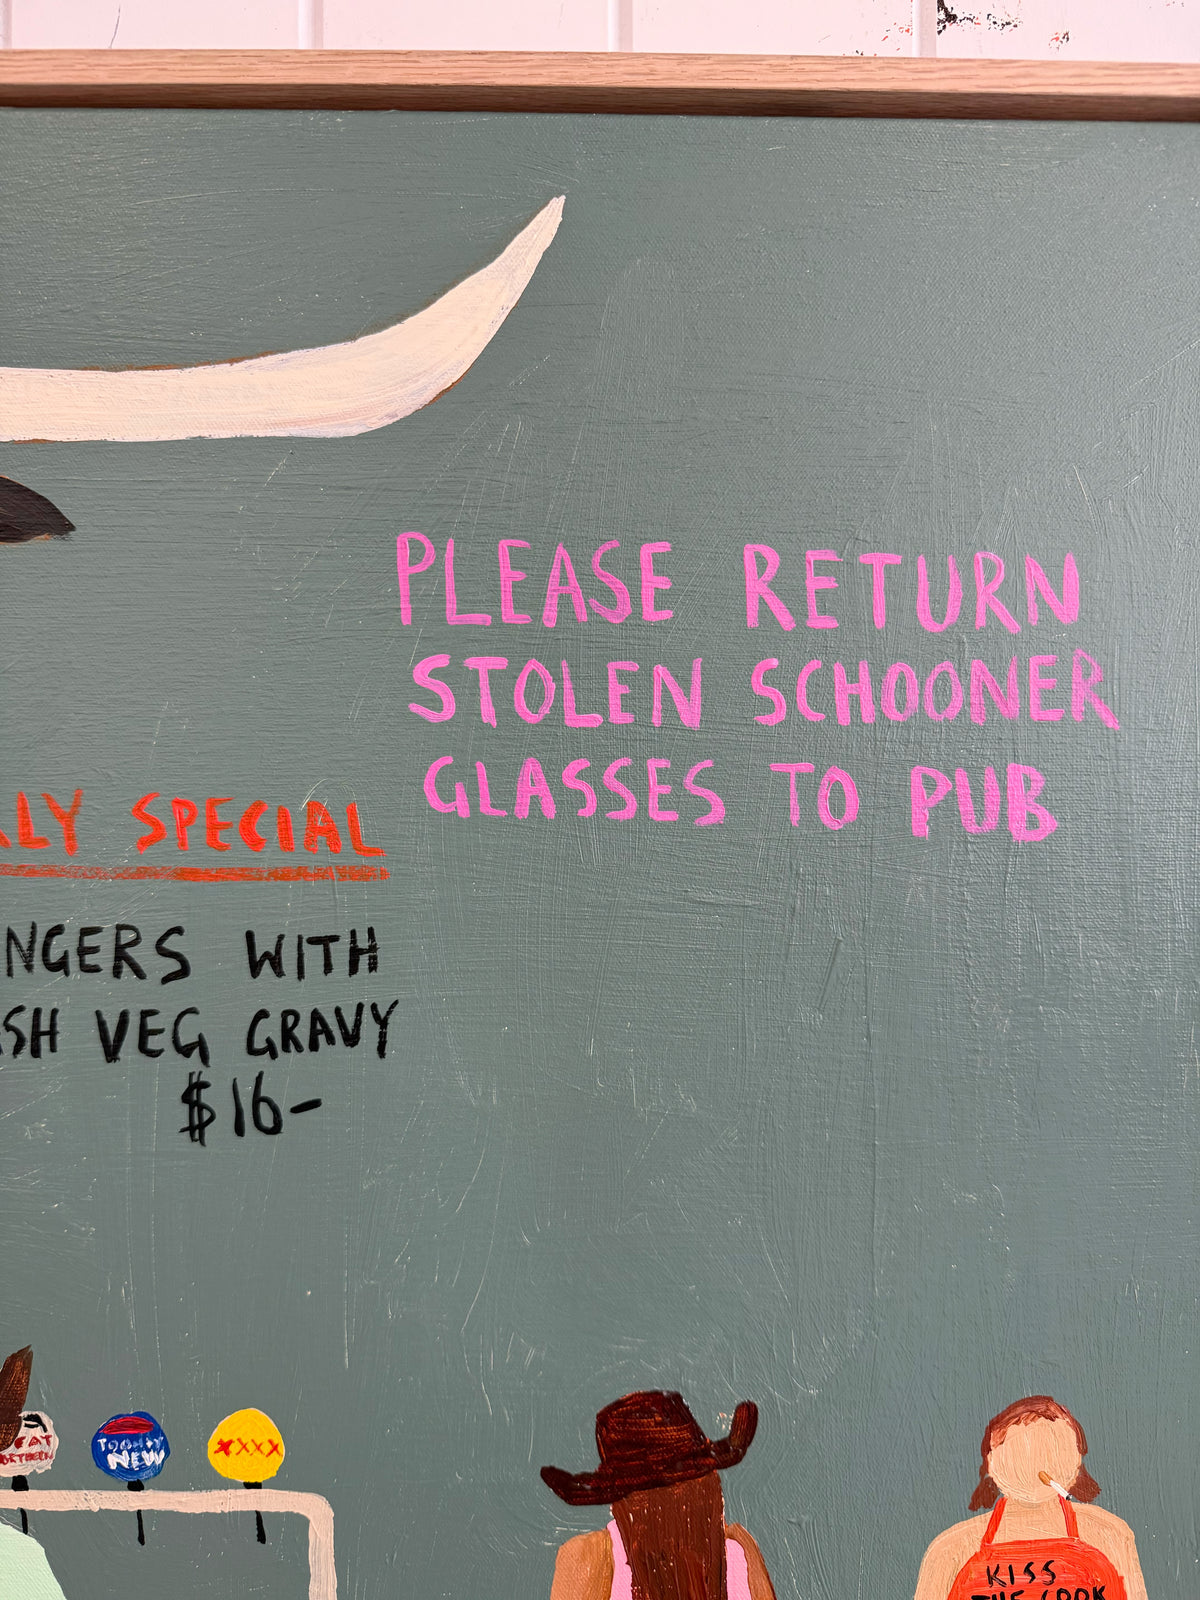 PLEASE RETURN
STOLEN SCHOONER
GLASSES TO PUB
LY SPECIAL
NGERS WITH
SH VEG GRAVY
$16-
FAT
TOOHEYS
NEW
XXXX
KISS
THE COOK